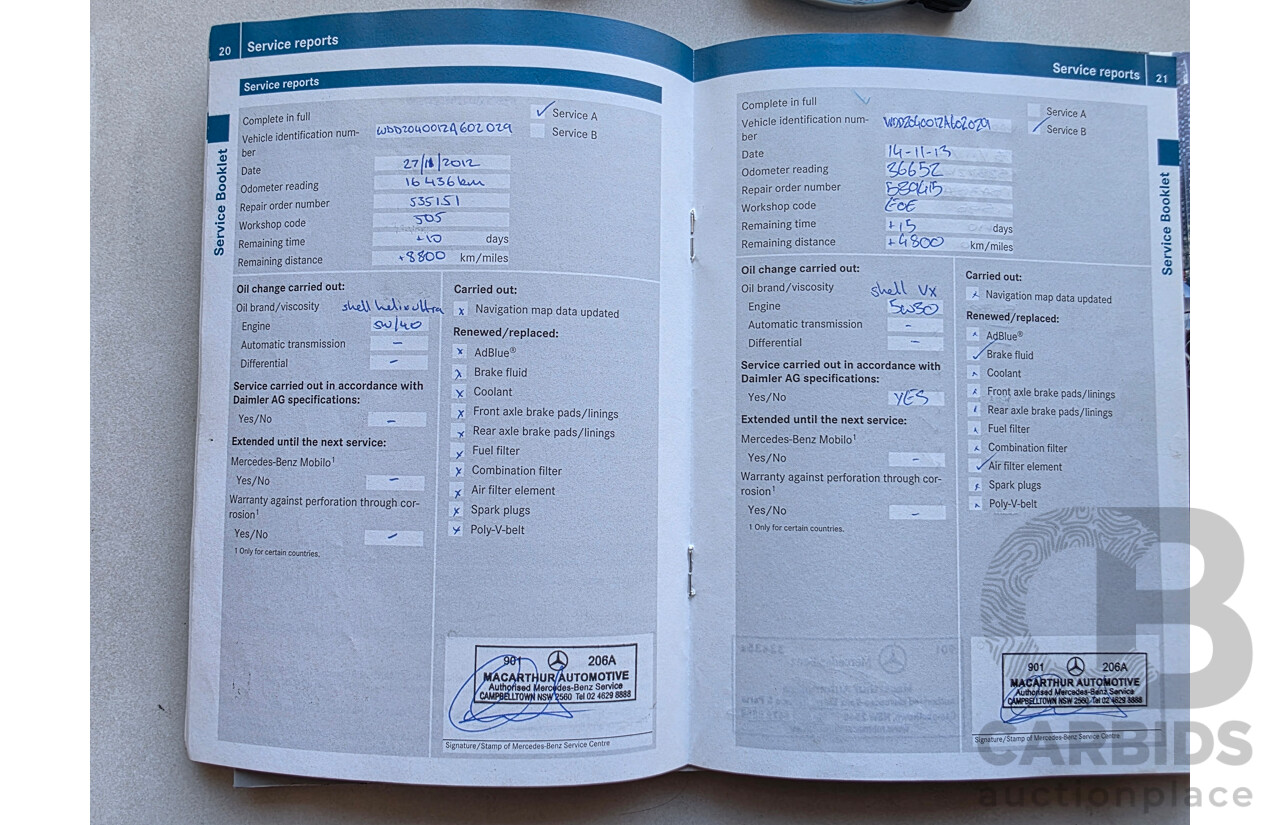 20 Service reports
Service reports
Service Booklet
Complete in full
✓ Service A
Service B
Vehicle identification num-
ber
WDD2040012A602029
Date 27/11/2012
Odometer reading 16436km
Repair order number 535151
Workshop code 505
Remaining time +10 days
Remaining distance +8800 km/miles
Oil change carried out:
Oil brand/viscosity shell helix ultra
Engine 5W/40
Automatic transmission -
Differential -
Service carried out in accordance with
Daimler AG specifications:
Yes/No -
Extended until the next service:
Mercedes-Benz Mobilo¹
Yes/No -
Warranty against perforation through cor-
rosion¹
Yes/No -
¹ Only for certain countries.
Carried out:
x Navigation map data updated
Renewed/replaced:
x AdBlue®
x Brake fluid
x Coolant
x Front axle brake pads/linings
x Rear axle brake pads/linings
x Fuel filter
x Combination filter
x Air filter element
x Spark plugs
x Poly-V-belt
901 206A
MACARTHUR AUTOMOTIVE
Authorised Mercedes-Benz Service
CAMPBELLTOWN NSW 2560 Tel 02 4629 8888
Signature/Stamp of Mercedes-Benz Service Centre
Service reports 21
Service Booklet
Complete in full
Service A
✓ Service B
Vehicle identification num-
ber
WDD2040012A602029
Date 14-11-13
Odometer reading 36652
Repair order number
Workshop code
Remaining time +15 days
Remaining distance +4800 km/miles
Oil change carried out:
Oil brand/viscosity shell VX
Engine 5W30
Automatic transmission -
Differential -
Service carried out in accordance with
Daimler AG specifications:
Yes/No YES
Extended until the next service:
Mercedes-Benz Mobilo¹
Yes/No -
Warranty against perforation through cor-
rosion¹
Yes/No -
¹ Only for certain countries.
Carried out:
x Navigation map data updated
Renewed/replaced:
x AdBlue®
✓ Brake fluid
x Coolant
x Front axle brake pads/linings
x Rear axle brake pads/linings
x Fuel filter
x Combination filter
✓ Air filter element
x Spark plugs
x Poly-V-belt
901 206A
MACARTHUR AUTOMOTIVE
Authorised Mercedes-Benz Service
CAMPBELLTOWN NSW 2560 Tel 02 4629 8888
Signature/Stamp of Mercedes-Benz Service Centre
CARBIDS
auctionplace